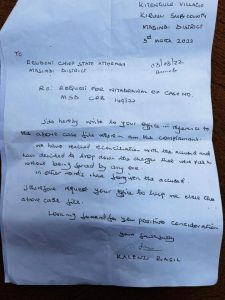 KITENGULE VILLAGE
KIRULI SUBCOUNTY
MASINDI DISTRICT
3rd MARCH 2022
TO
RESIDENT CHIEF STATE ATTORNEY
MASINDI DISTRICT
03/03/22
RE: REQUEST FOR WITHDRAWAL OF CASE NO.
MSD CRB 140/22
I do hereby write to your office in reference to
the above case file where in am the complainant.
We have reached reconciliation with the accused and
have decided to drop down the charges that were put to
without being forced by any one.
In other words I have forgiven the accused.
I therefore request your office to help me close the
above case file.
Looking forward for your positive consideration
Yours faithfully
KALENZI BASIL